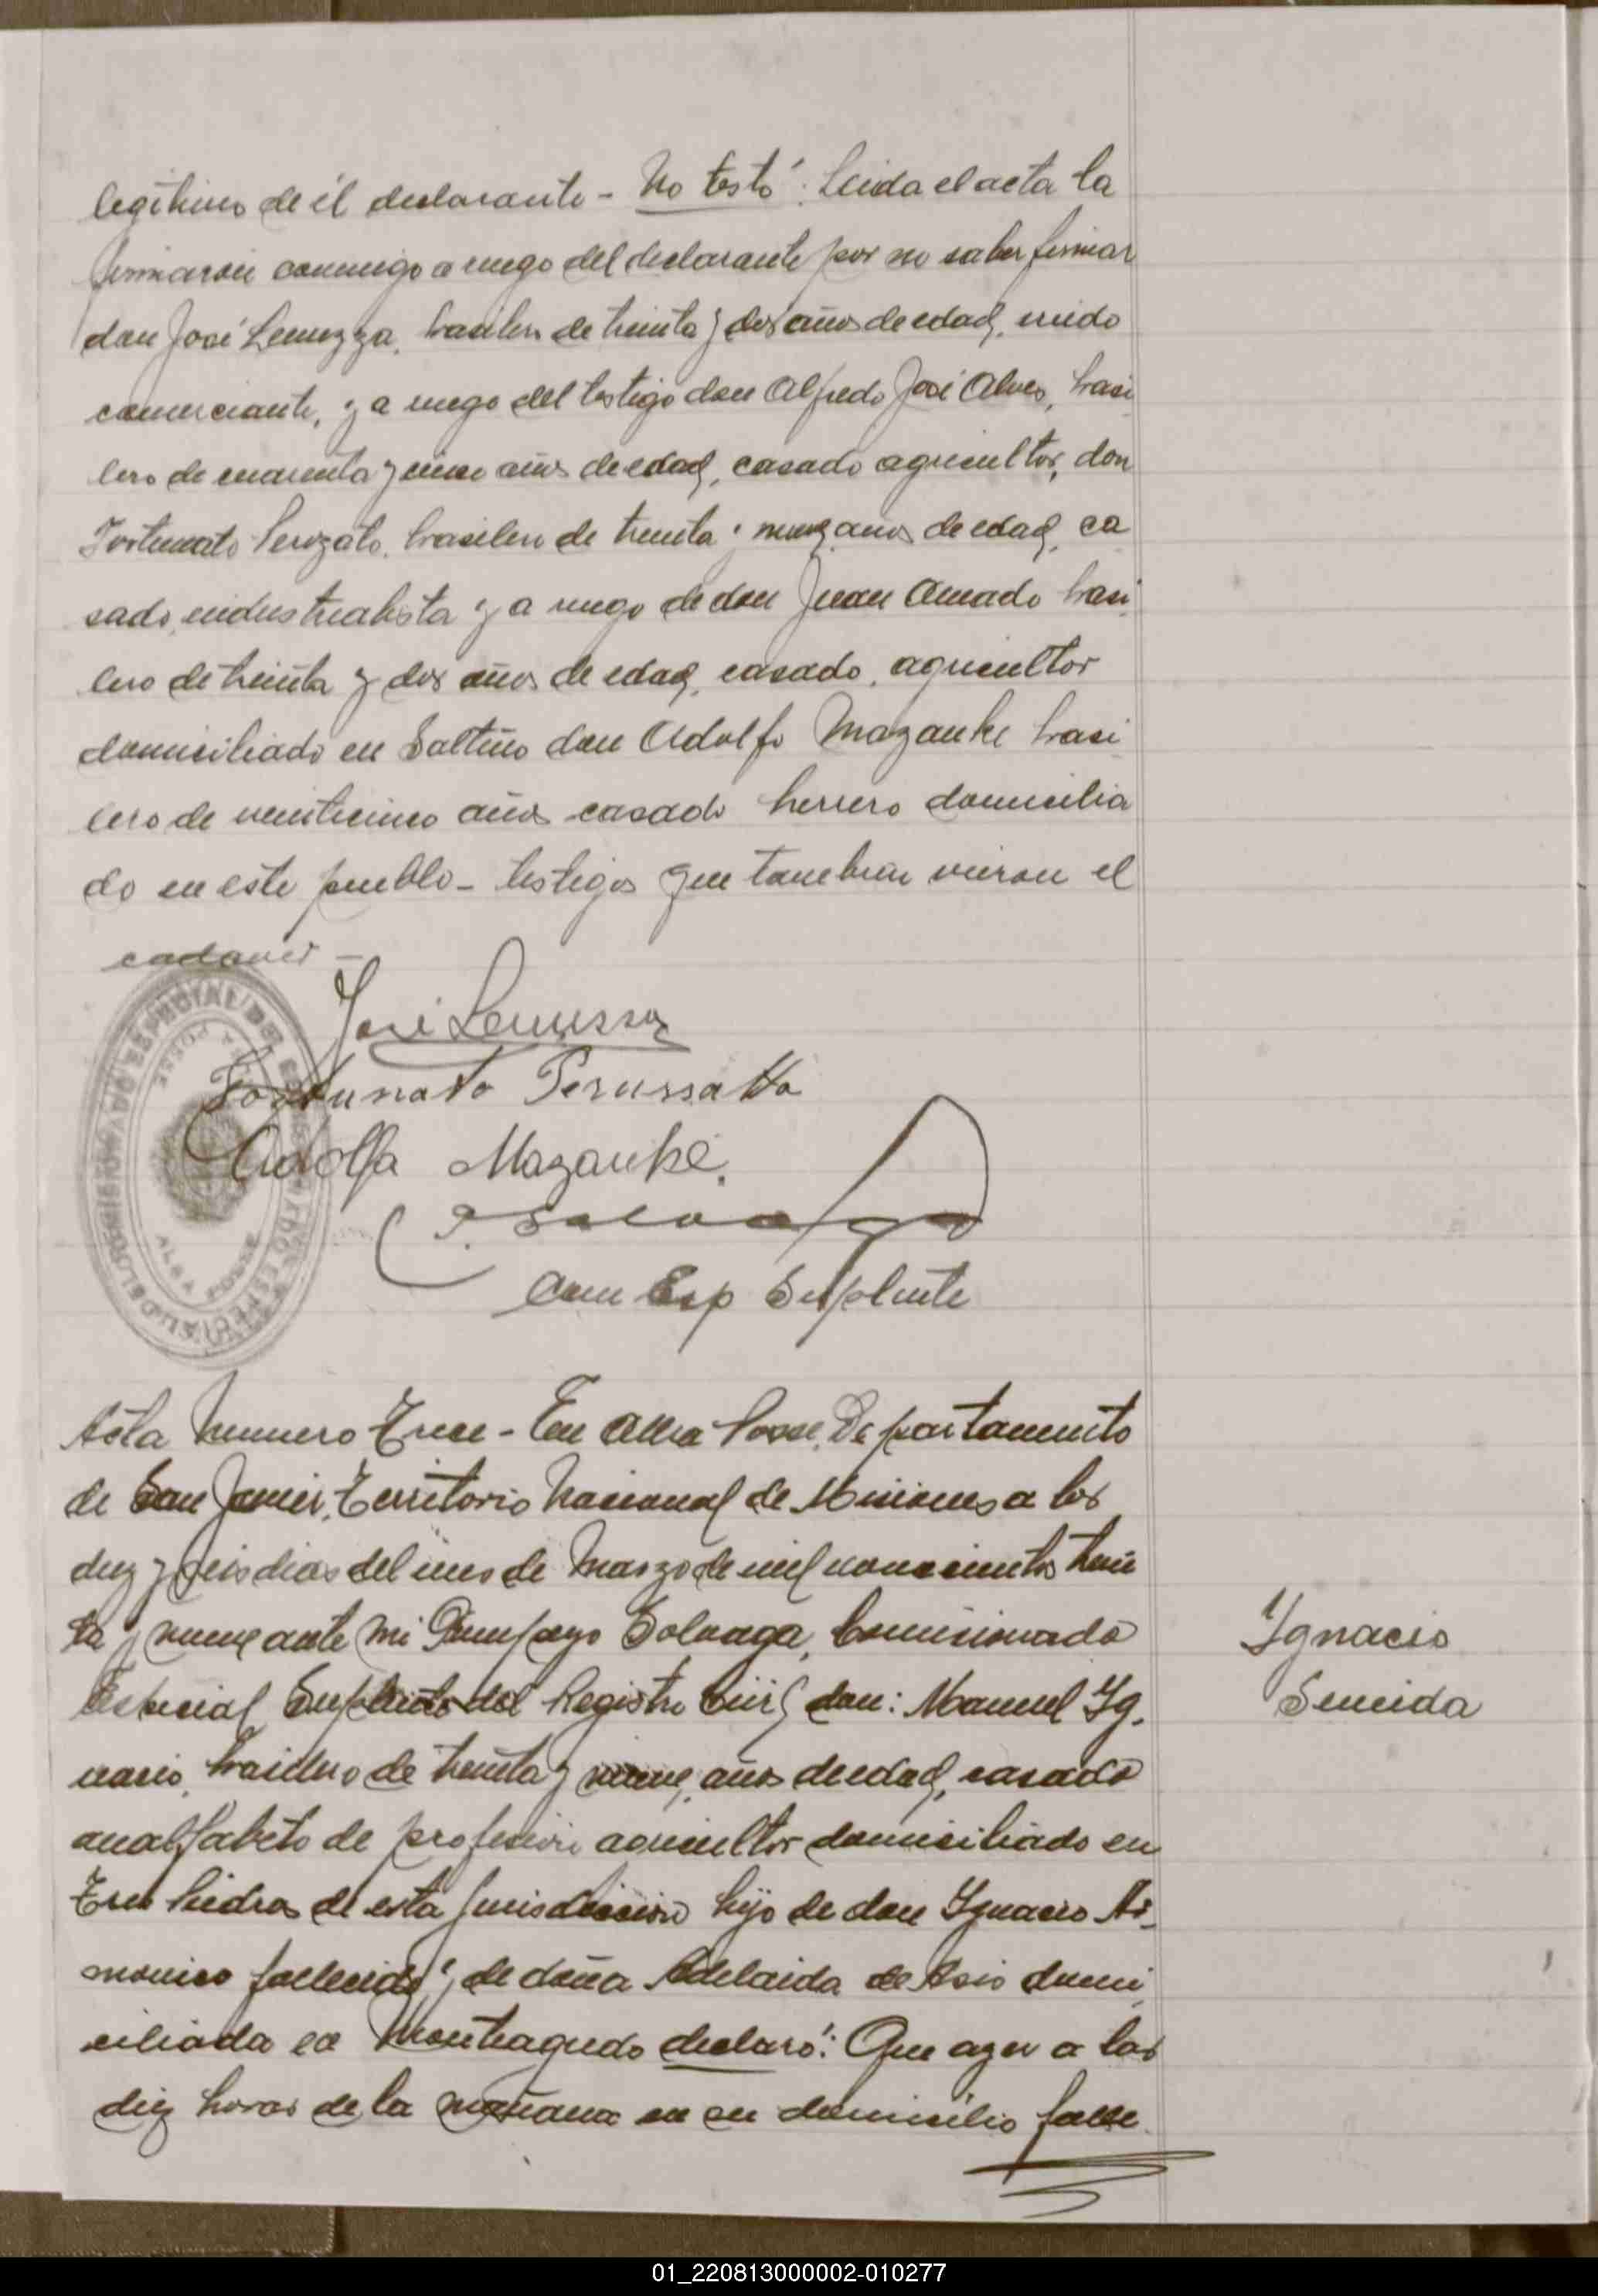 legítimo de él declarante - No testó: Leida el acta la
firmaron conmigo a ruego del declarante por no saber firmar
don José Lemuzza, brasilero de treinta y dos años de edad, viudo
comerciante, y a ruego del testigo don Alfredo José Alves, brasi
lero de cuarenta y cinco años de edad, casado agricultor, don
Fortunato Peruzato, brasilero de treinta y nueve años de edad, ca
sado, industrialista y a ruego de don Juan Amado brasi
lero de treinta y dos años de edad, casado, agricultor
domiciliado en Saltiño don Adolfo Mazanke brasi
lero de veinticinco años casado herrero domicilia
do en este pueblo - testigos que tambien vieron el
cadaver -
José Lemussa
Fortunato Perussatto
Adolfo Mazanke.
P. Soloaga
Com Esp Suplente
ALBA POSSE
Acta Numero Trece - En Alba Posse, Departamento
de San Javier, Territorio Nacional de Misiones a los
diez y seis dias del mes de Marzo de mil novecientos trein
ta y nueve ante mi Pompeyo Soloaga, Comisionado
Especial Suplente del Registro Civil don: Manuel Ig.
nacio, brasilero de treinta y nueve, años de edad, casado
analfabeto de profesion agricultor domiciliado en
Tres Piedras de esta Jurisdiccion hijo de don Ignacio
fallecido y de doña Adelaida de Asis domi
ciliada en Monteagudo declaró: Que ayer a las
diez horas de la mañana en su domicilio falle
Ygnacio
Seneida
01_220813000002-010277